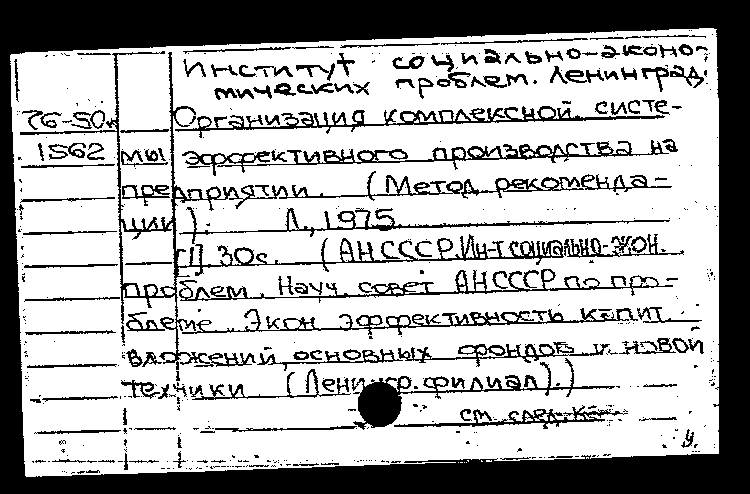 Институт социально-эконо-
мических проблем. Ленинград.
76-50к Организация комплексной систе-
1562 мы эффективного производства на
предприятии. (Метод. рекоменда-
ции). Л., 1975.
[1], 30с. (АН СССР. Ин-т социально-экон.
проблем. Науч. совет АН СССР по про-
блеме „Экон. эффективность капит.
вложений, основных фондов и новой
техники" (Ленингр. филиал).)
см. след.